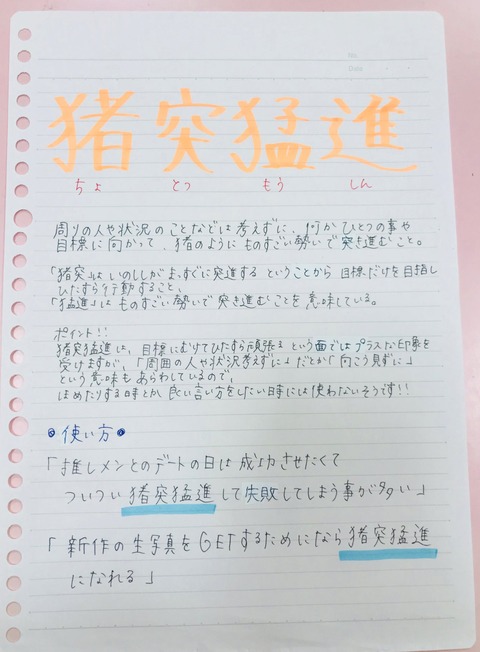 No.
Date
猪突猛進
ちょ とつ もう しん
周りの人や状況のことなどは考えずに、何かひとつの事や
目標に向かって、猪のようにものすごい勢いで突き進むこと。
「猪突」は いのししがまっすぐに突進する ということから 目標だけを目指し
ひたすら行動すること、
「猛進」は ものすごい勢いで 突き進むことを 意味している。
ポイント!!
猪突猛進は、目標にむけてひたすら頑張る という面ではプラスな印象を
受けますが、「周囲の人や状況考えずに」だとか「向こう見ずに」
という意味も あらわしているので、
ほめたりする時とか 良い言い方をしたい時には使わないそうです!!
◎使い方◎
「推しメンとのデートの日は成功させたくて
ついつい猪突猛進して失敗してしまう事が多い」
「新作の生写真をGETするためになら猪突猛進
になれる」